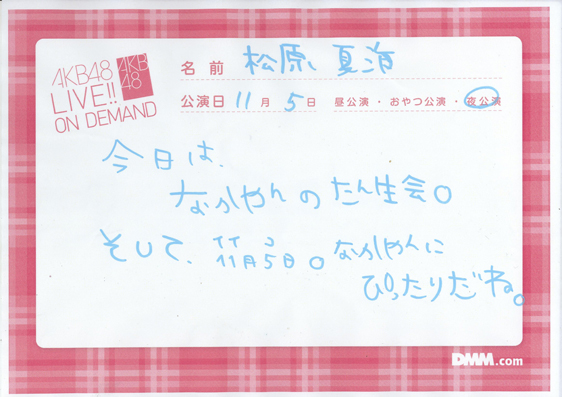 AKB48
LIVE!!
ON DEMAND
AKB
48
名前 松原 夏海
公演日 11月 5日 昼公演・おやつ公演・夜公演
今日は、
なかやんのたん生会。
そして、11月5日。なかやんに
イイ コ
ぴったりだね。
DMM.com